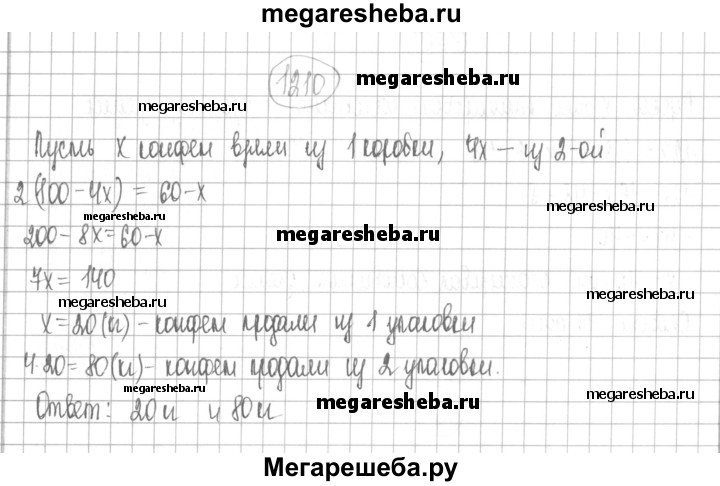 megaresheba.ru
1210
megaresheba.ru
megaresheba.ru
Пусть x конфет взяли из 1 коробки, 4x – из 2-ой
2(100 - 4x) = 60 - x
megaresheba.ru
megaresheba.ru
200 - 8x = 60 - x
megaresheba.ru
7x = 140
megaresheba.ru
megaresheba.ru
x = 20(к) - конфет продали из 1 упаковки
4·20 = 80(к) - конфет продали из 2 упаковки.
megaresheba.ru
megaresheba.ru
megaresheba.ru
Ответ: 20к и 80к
Мегарешеба.ру